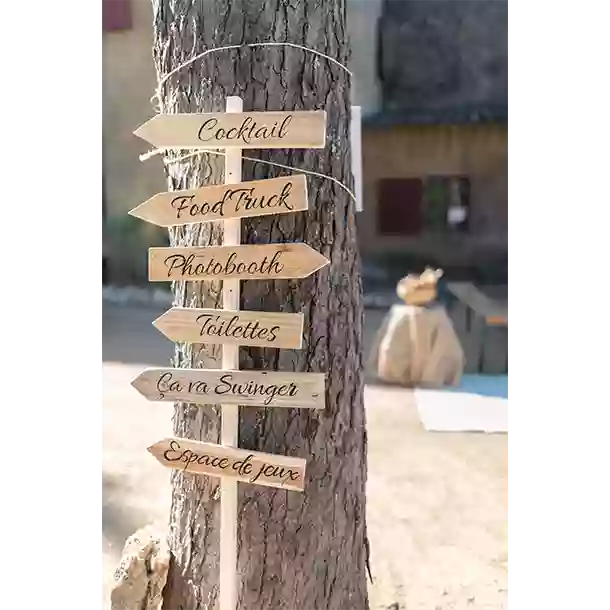 Cocktail
Food Truck
Photobooth
Toilettes
Ça va Swinger
Espace de jeux